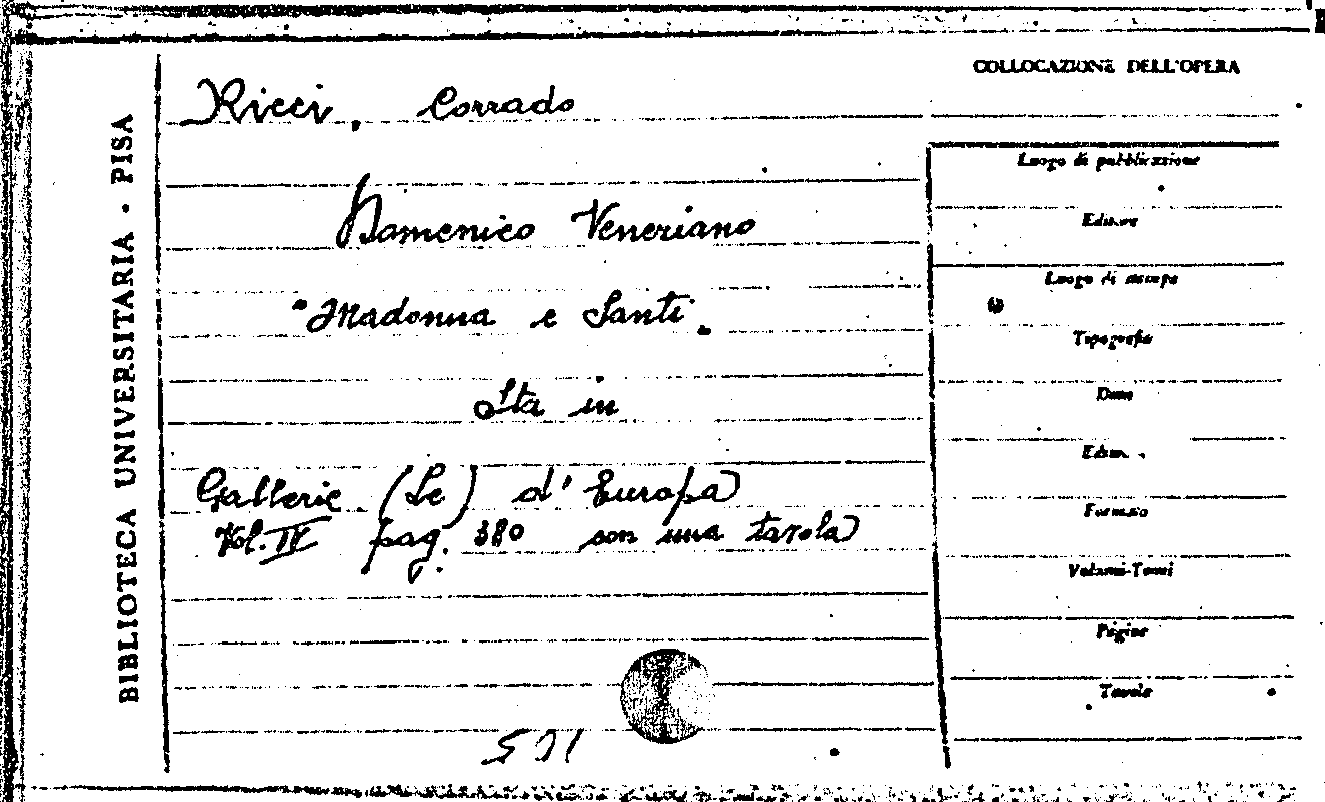 BIBLIOTECA UNIVERSITARIA - PISA
COLLOCAZIONE DELL'OPERA
Ricci, Corrado
Domenico Veneziano
"Madonna e Santi"
Sta in
Gallerie (Le) d'Europa
Vol. IV pag. 380 con una tavola
501
Luogo di pubblicazione
Editore
Luogo di stampa
Tipografia
Data
Ediz.
Formato
Volumi-Tomi
Pagine
Tavole